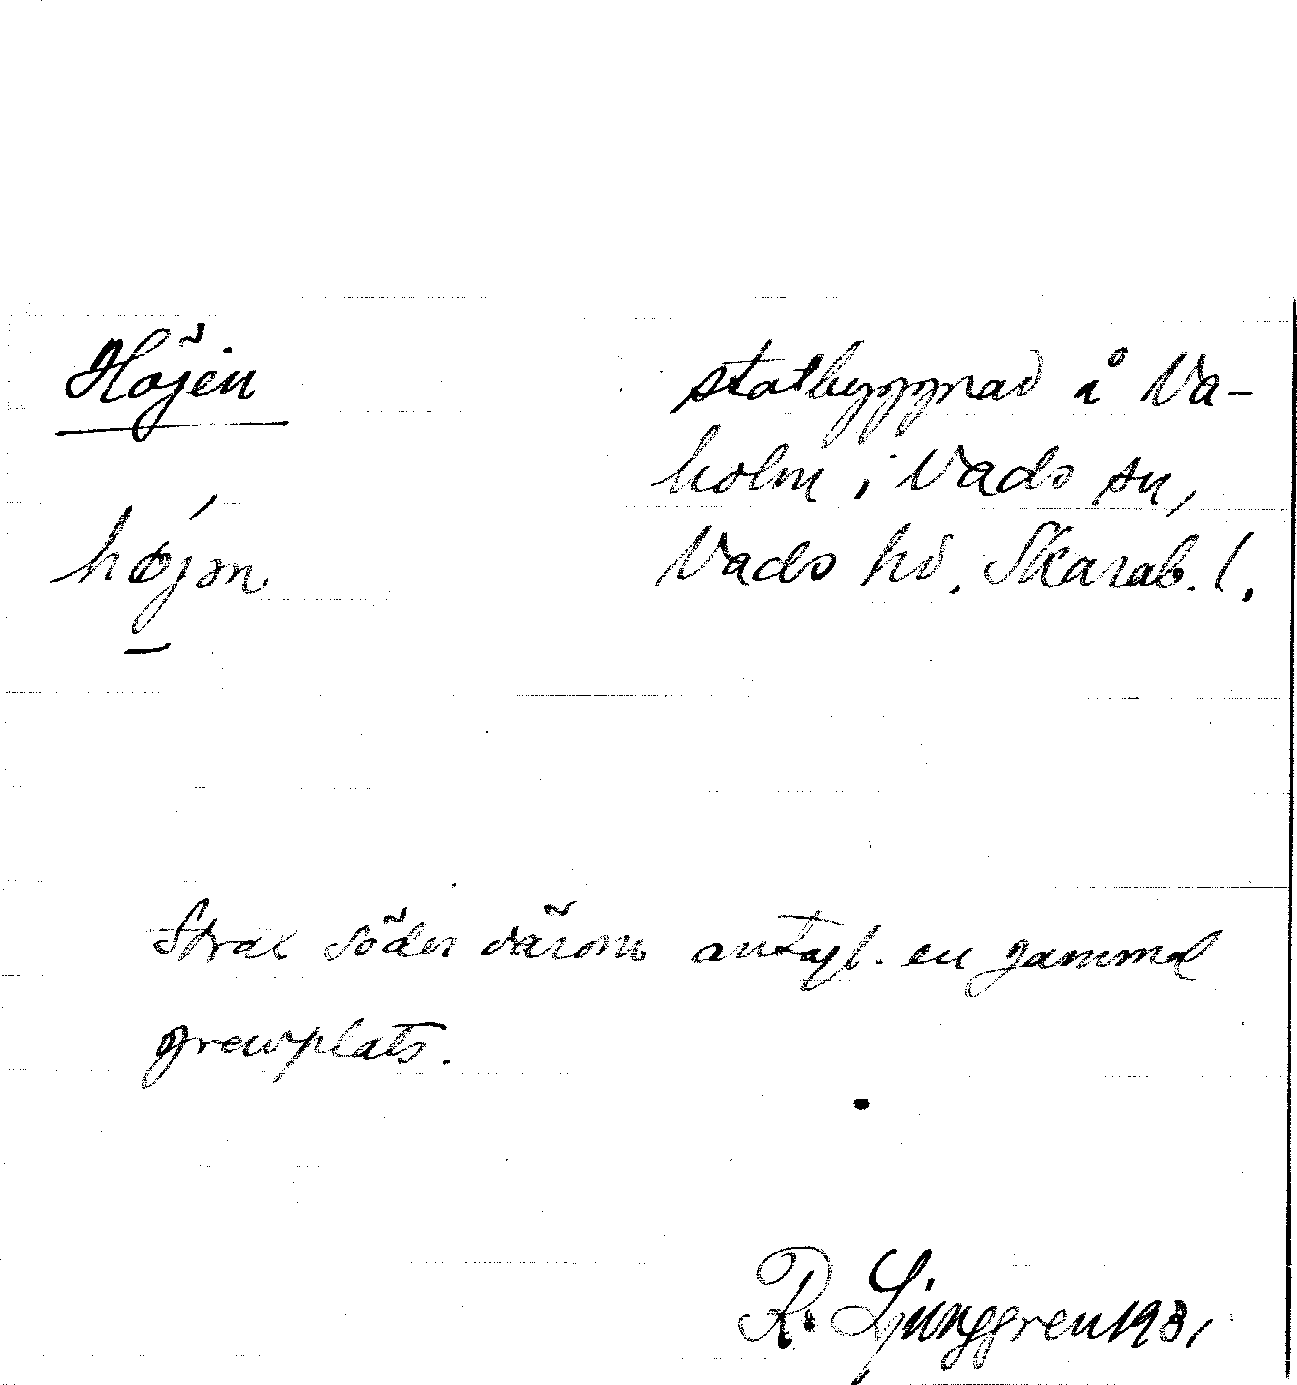 Höjen
statbyggnad å Va-
holm i Vads sn,
Vads hd. Skarab. l.
højən
Strax söder därom antagl. en gammal
grewplats.
R. Ljunggren 1931